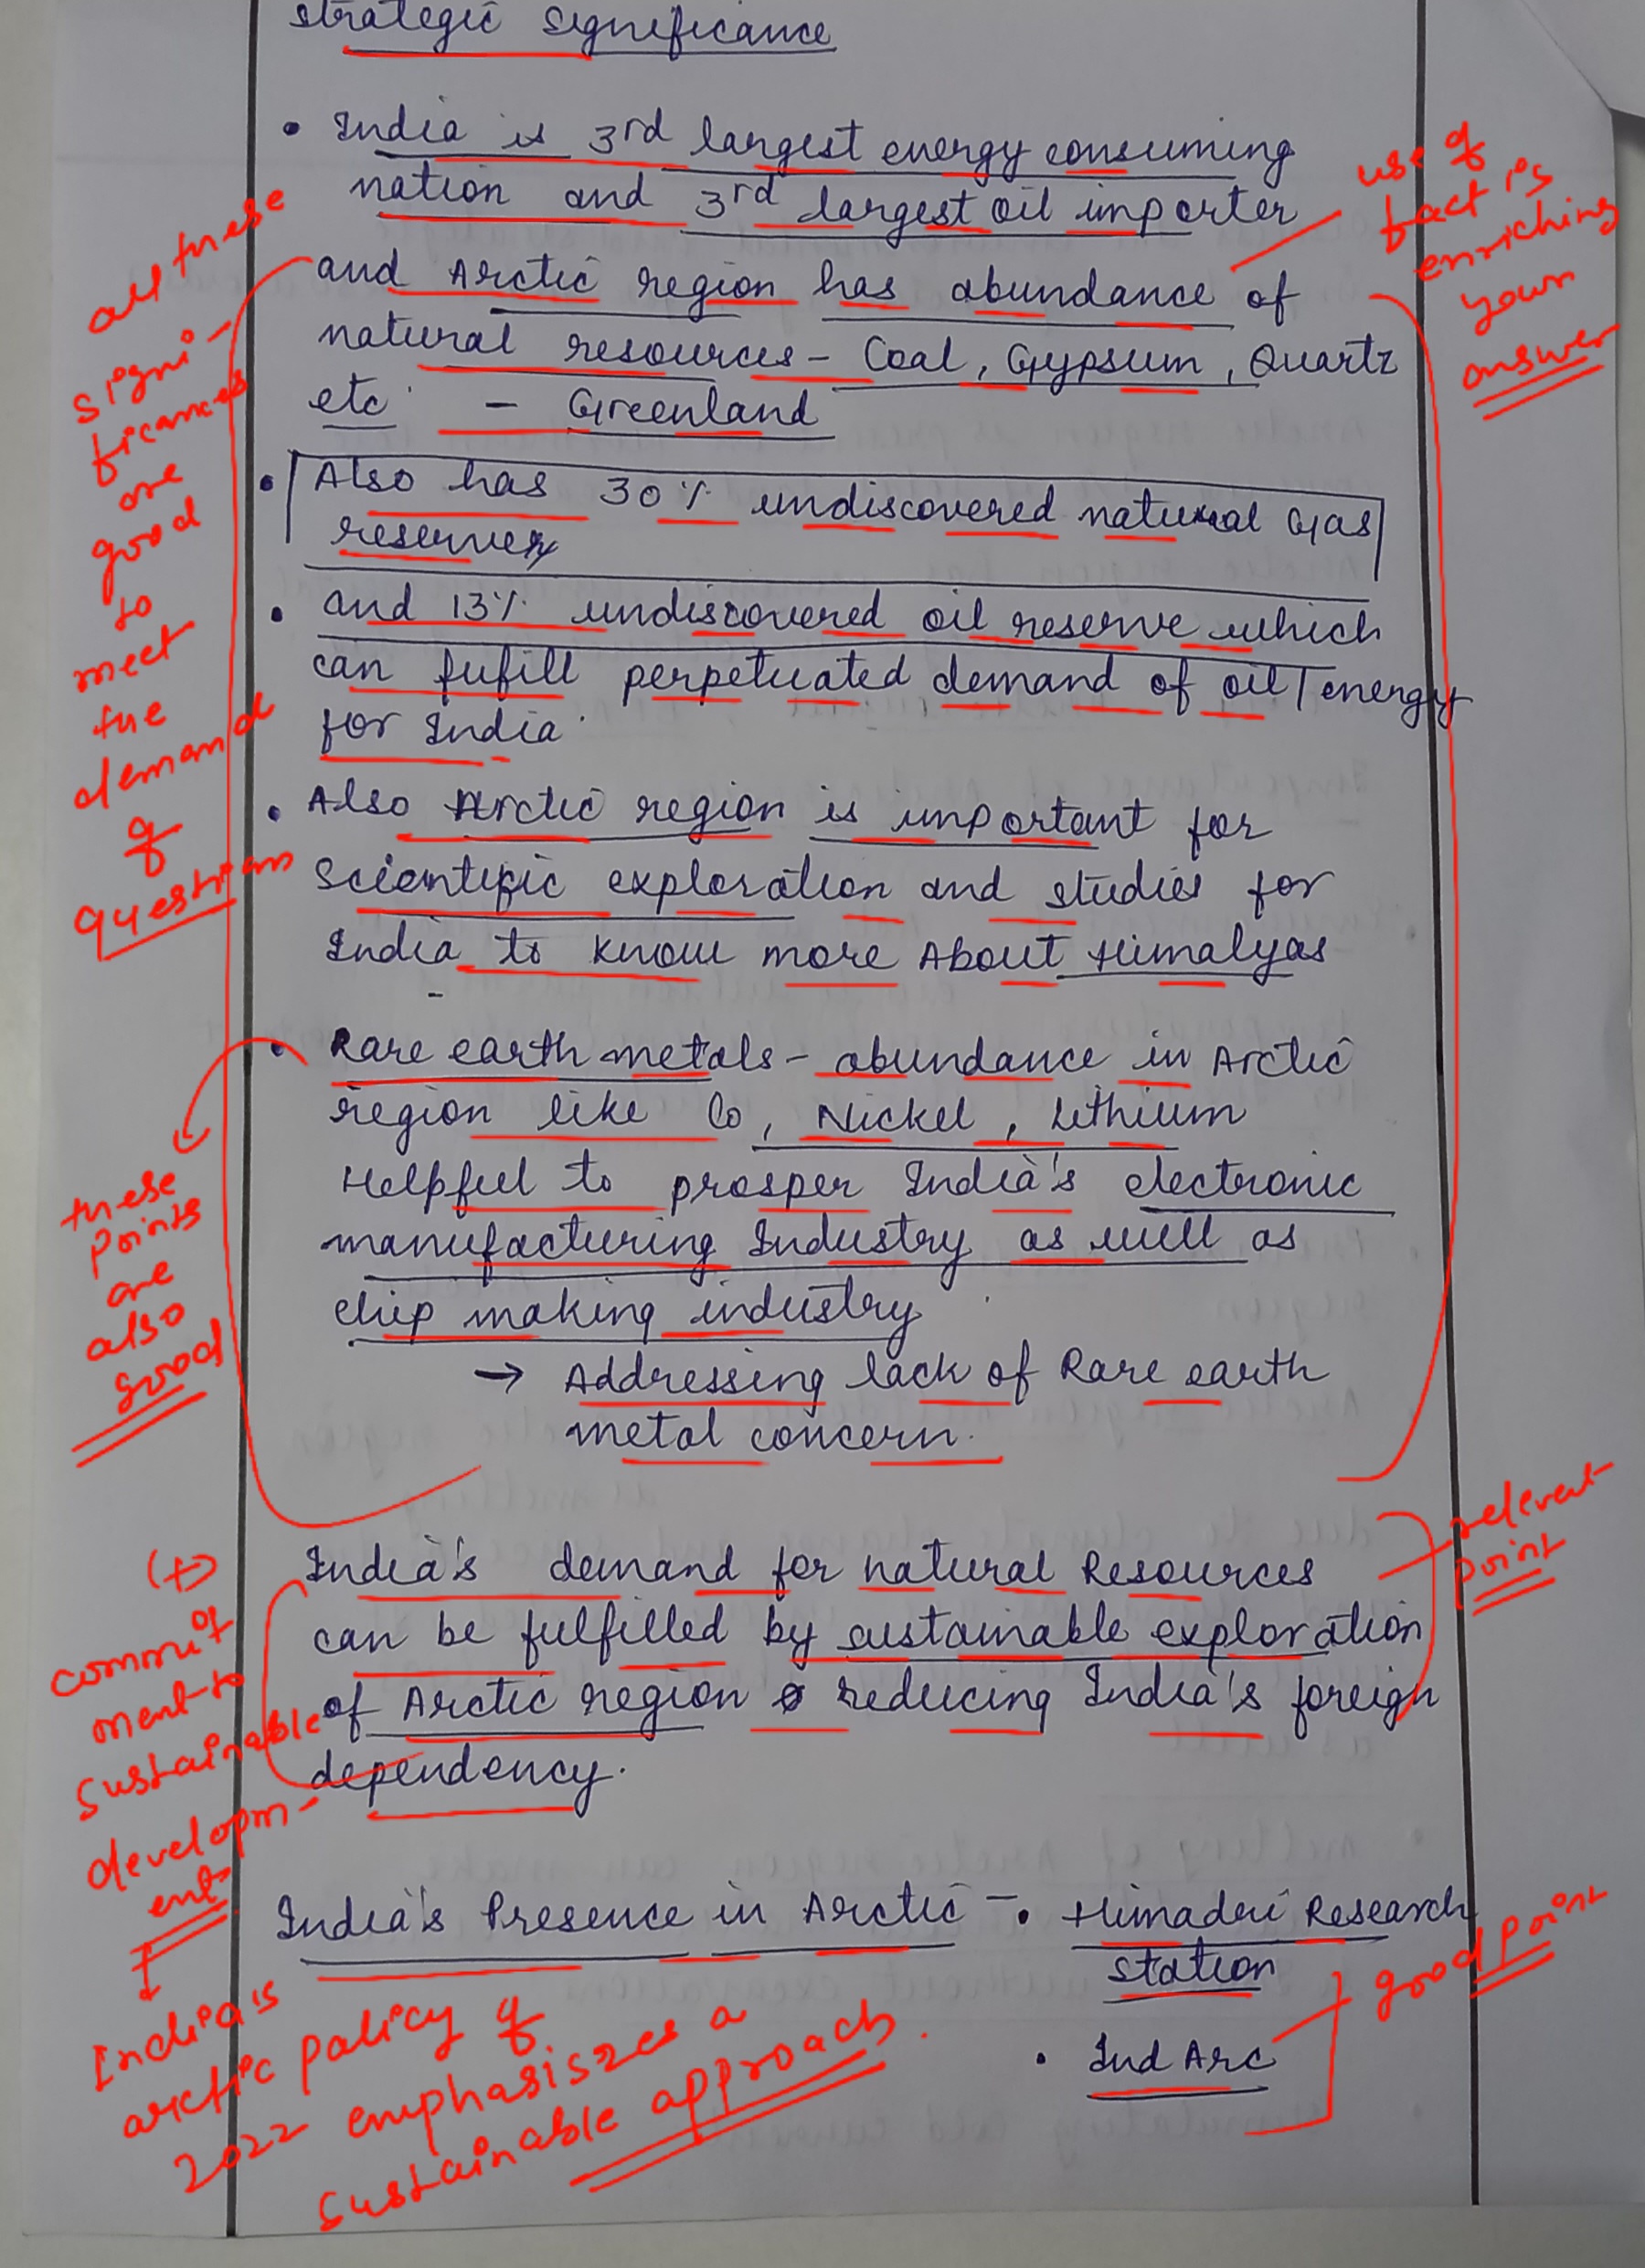 strategic significance
• India is 3rd largest energy consuming
nation and 3rd largest oil importer
and Arctic region has abundance of
natural resources - Coal, Gypsum, Quartz
etc - Greenland
• Also has 30% undiscovered natural Gas
reserves
• and 13% undiscovered oil reserve which
can fufill perpetuated demand of oil/energy
for India.
• Also Arctic region is important for
Scientific exploration and studies for
India to know more About Himalyas
• Rare earth metals - abundance in Arctic
region like Co, Nickel, Lithium
Helpful to prosper India's electronic
manufacturing Industry as well as
chip making industry
→ Addressing lack of Rare earth
metal concern.
India's demand for natural Resources
can be fulfilled by sustainable exploration
of Arctic region reducing India's foreign
dependency.
India's Presence in Arctic - • Himadri Research
station
• Ind Arc
all these
signi-
ficances
are
good
to
meet
the
demand
of
question
use of
fact is
enriching
your
answer
these
points
are
also
good
relevent
point
(+)
commit
ment to
sustainable
developm-
ent
India's
arctic policy of
2022 emphasiszes a
sustainable approach.
good point